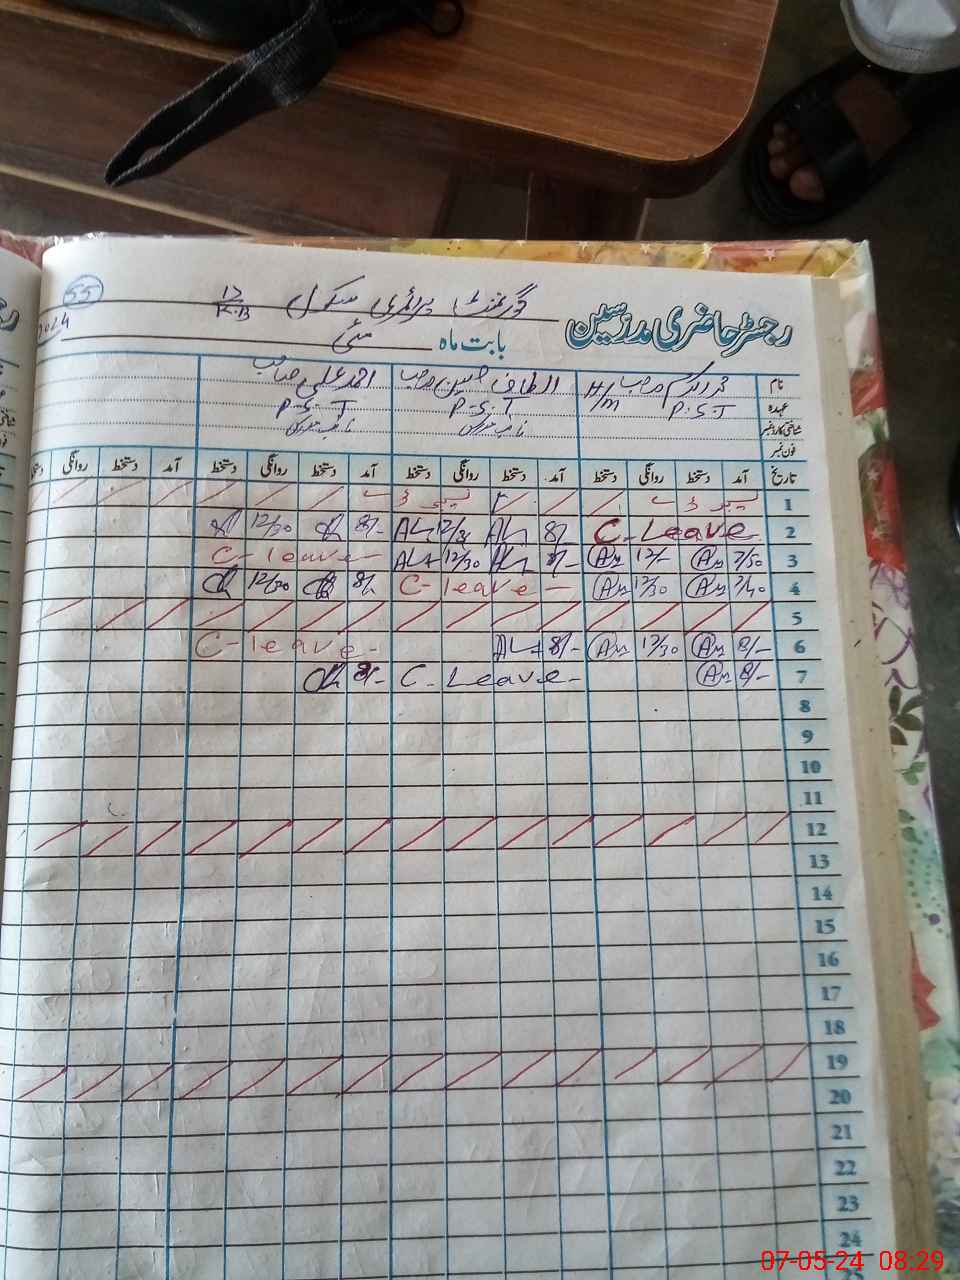 55
گورنمنٹ پرائمری سکول 17/R.B
رجسٹر حاضری مدرسین
بابت ماہ مئی 2024
نام صاحب الطاف حسین صاحب احمد علی صاحب
H/M
عہدہ P.S.T P.S.T P.S.T
شناختی کارڈ نمبر
فون نمبر
تاریخ آمد دستخط روانگی دستخط آمد دستخط روانگی دستخط آمد دستخط روانگی دستخط آمد دستخط روانگی
1
2 C-Leave 8/- AL 12/30 AL 8/- 12/30
3 7/50 Am 12/- Am 8/- AL 12/30 AL C-leave
4 7/40 Am 12/30 Am C-leave 8/- 12/30
5
6 8/- Am 12/30 Am 8/- AL C-leave
7 8/- Am C-Leave 8/-
8
9
10
11
12
13
14
15
16
17
18
19
20
21
22
23
24
07-05-24 08:29